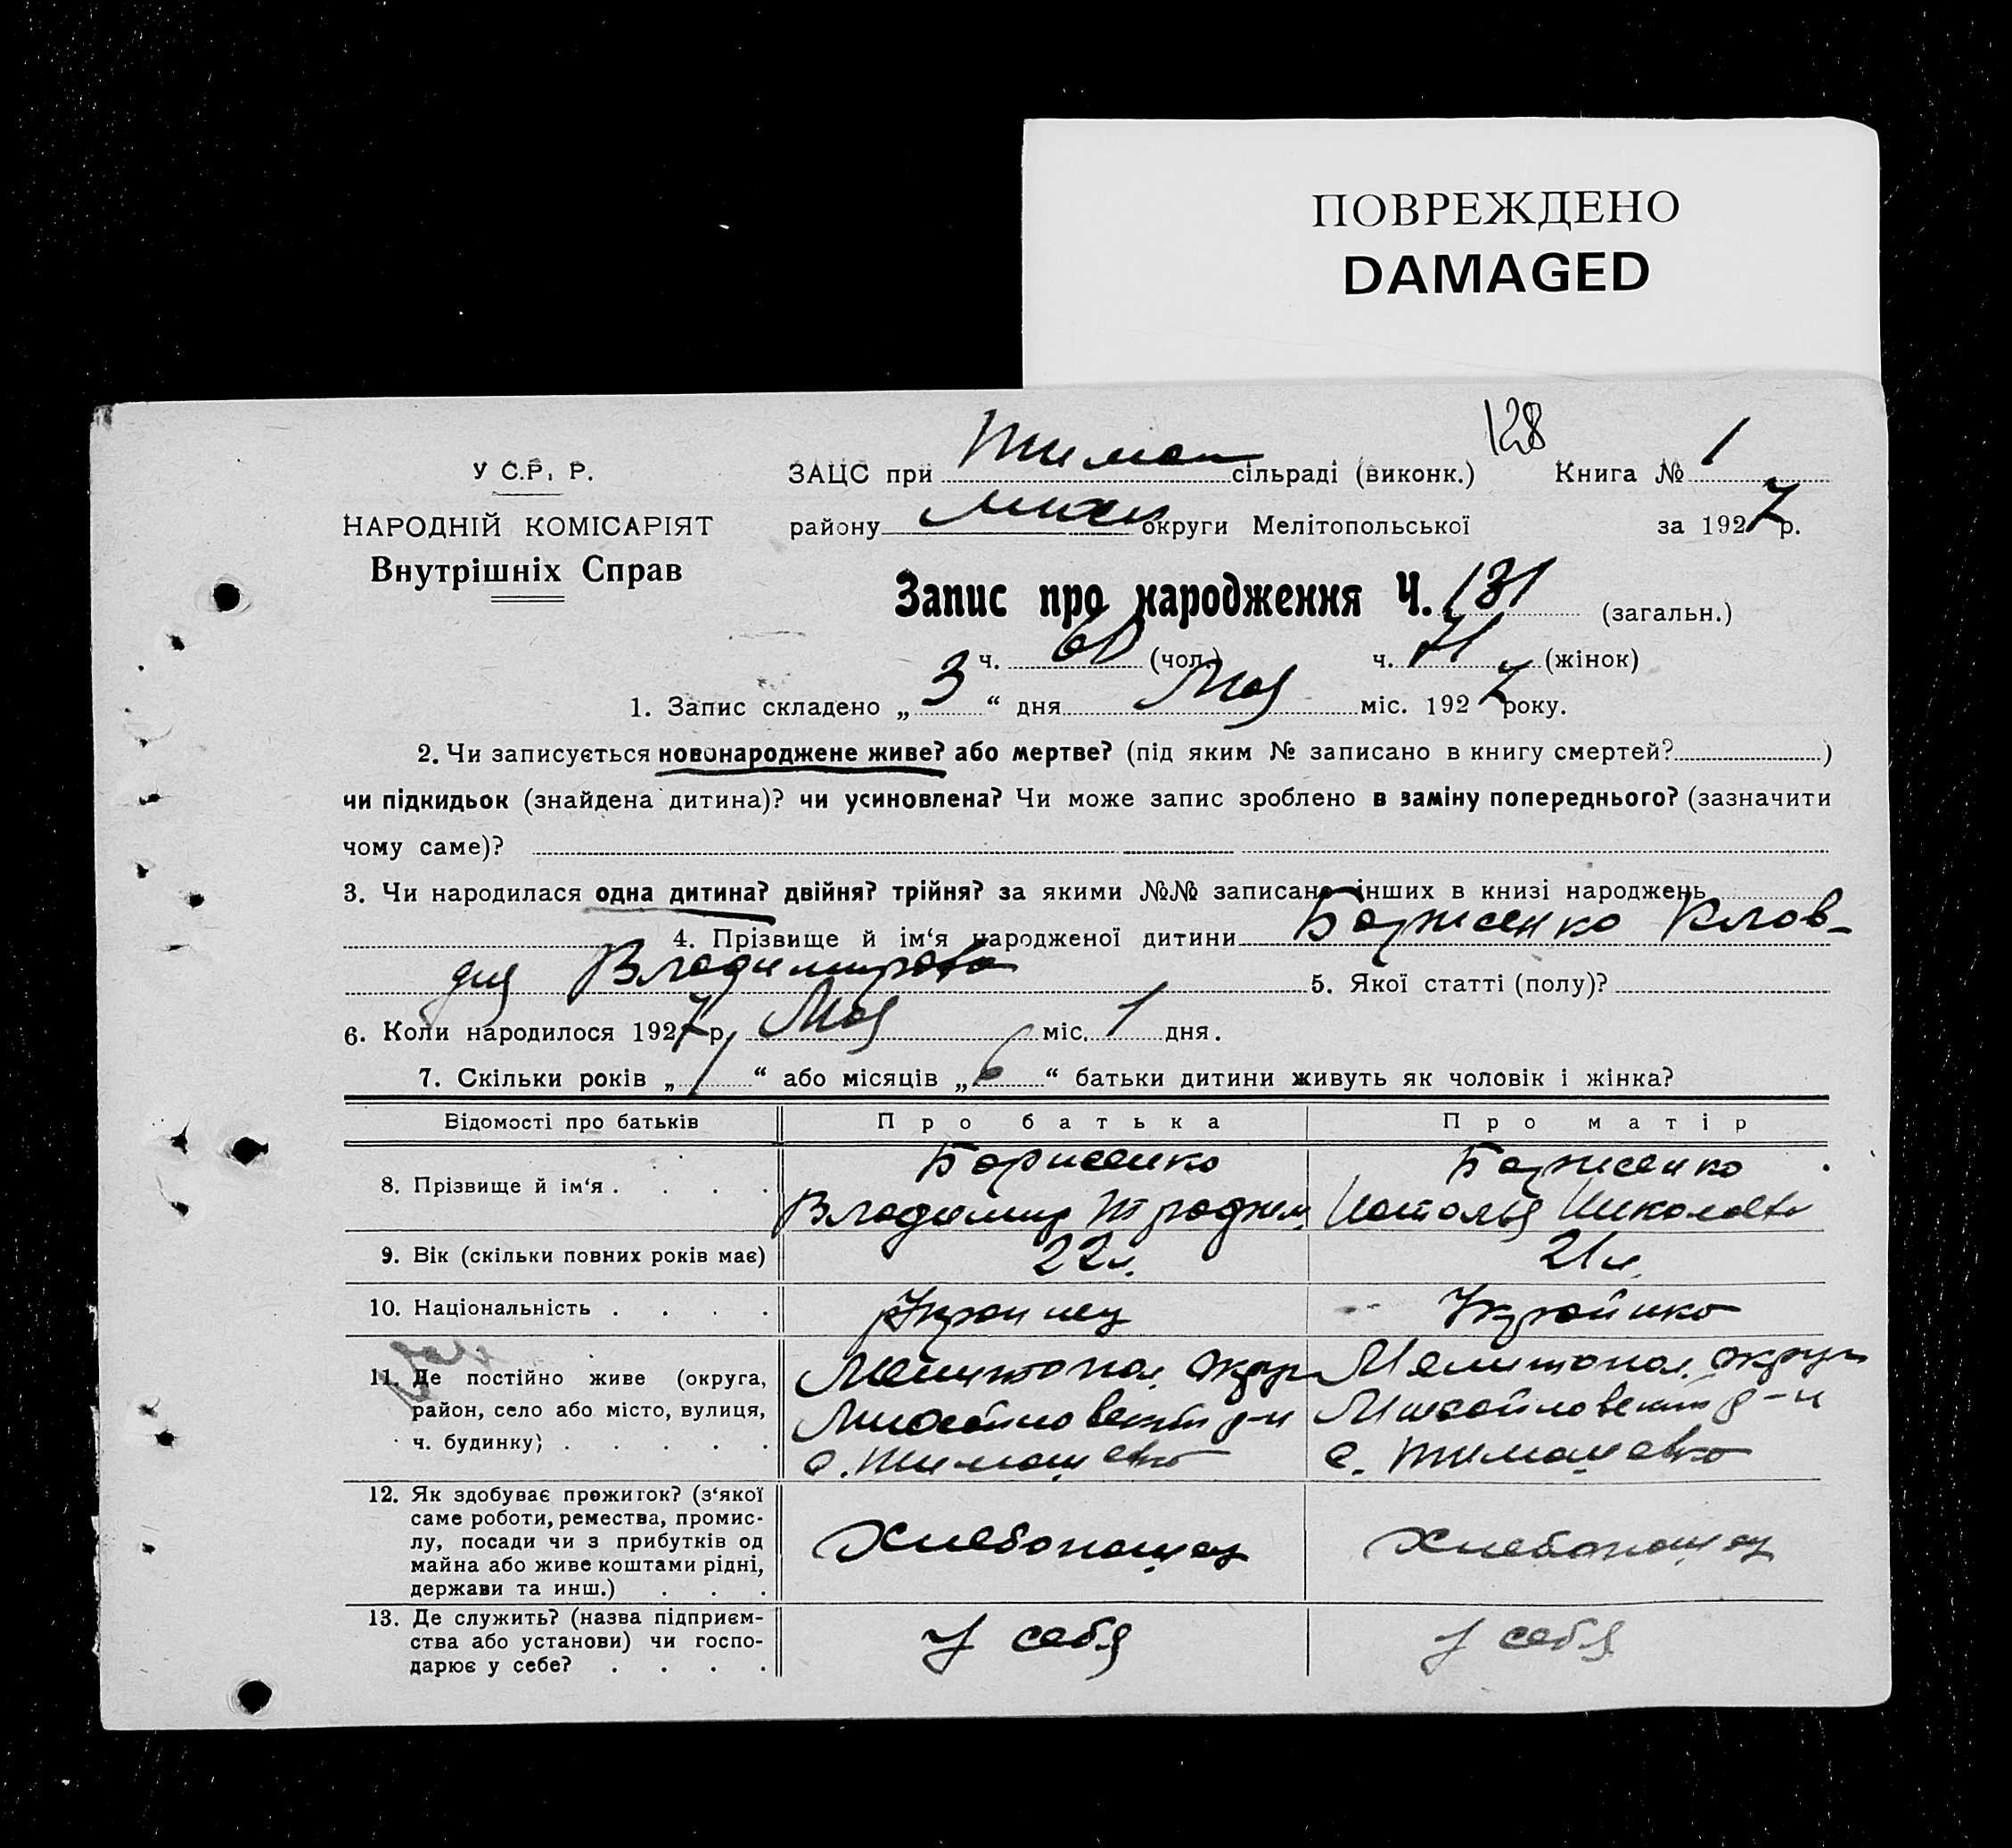 ПОВРЕЖДЕНО
DAMAGED
128
У С.Р. Р.
ЗАЦС при Тимош сільраді (виконк.) Книга № 1
НАРОДНІЙ КОМІСАРІЯТ
району Миха округи Мелітопольської за 1927 р.
Внутрішніх Справ
Запис про народження Ч. 131 (загальн.)
ч. 60 (чол.) ч. 71 (жінок)
1. Запис складено „ 3 “ дня Мая міс. 1927 року.
2. Чи записується новонароджене живе? або мертве? (під яким № записано в книгу смертей? )
чи підкидьок (знайдена дитина)? чи усиновлена? Чи може запис зроблено в заміну попереднього? (зазначити
чому саме)?
3. Чи народилася одна дитина? двійня? трійня? за якими №№ записано інших в книзі народжень
4. Прізвище й ім‘я народженої дитини Борисенко Клав-
дия Владимирова 5. Якої статті (полу)?
6. Коли народилося 1927 р. Мая міс. 1 дня.
7. Скільки років „ 1 “ або місяців „ 6 “ батьки дитини живуть як чоловік і жінка?
Відомості про батьків Про батька Про матір
8. Прізвище й ім‘я . . . . Борисенко Борисенко
Владимир Наталья Николаева
9. Вік (скільки повних років має) 22 л. 21 л.
10. Національність . . . . Украинец Украйинка
11. Де постійно живе (округа, Мелитопол. округ Мелитопол. округ
район, село або місто, вулиця, Михайловский р-н Михайловский р-н
ч. будинку) . . . . . с. Тимошевка с. Тимошевка
12. Як здобуває прожиток? (з‘якої
саме роботи, ремества, промис-
лу, посади чи з прибутків од Хлебопашец Хлебопашец
майна або живе коштами рідні,
держави та инш.) . . .
13. Де служить? (назва підприєм-
ства або установи) чи госпо- У себя У себя
дарює у себе? . . . .